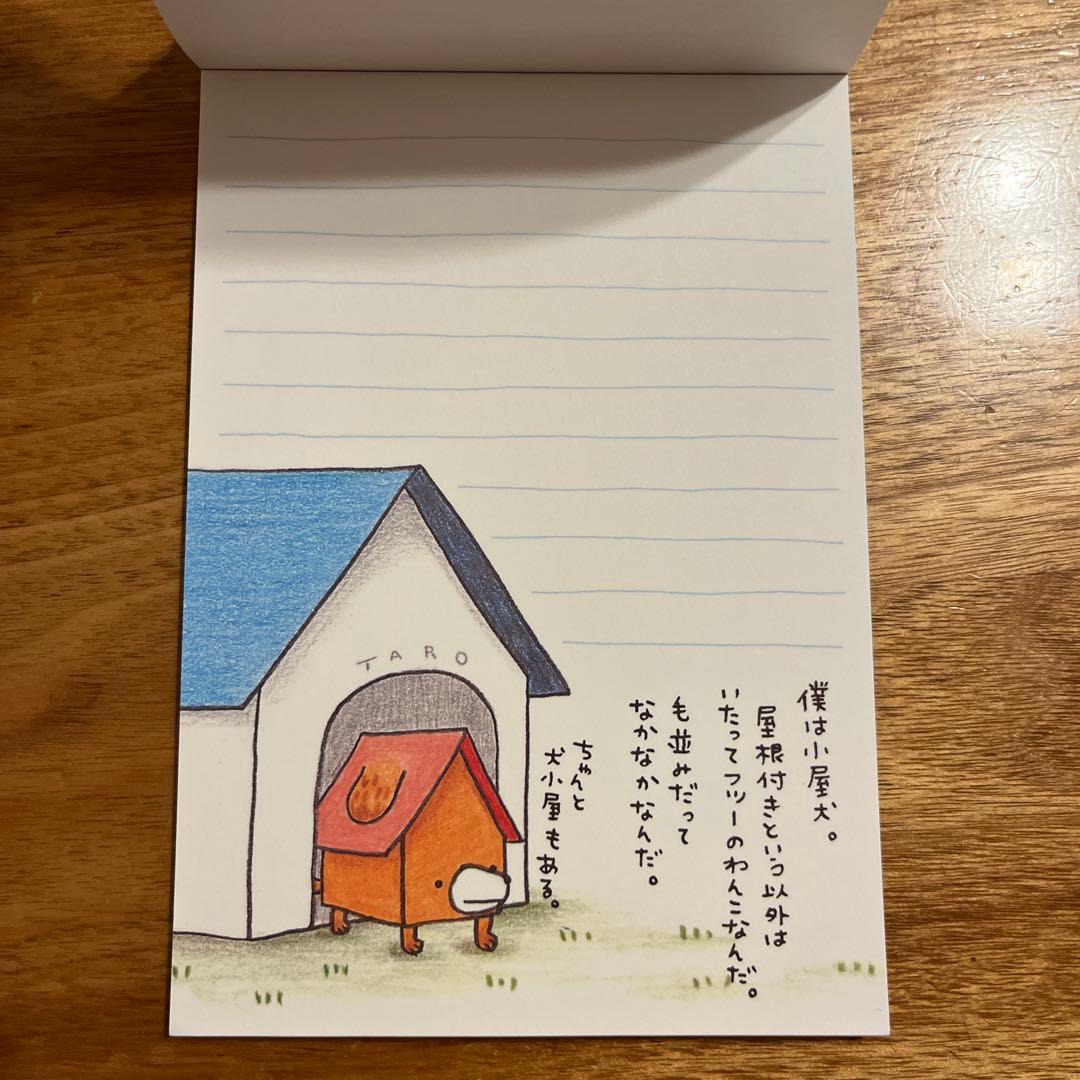 TARO
僕は小屋犬。
屋根付きという以外は
いたってフツーのわんこなんだ。
毛並みだって
なかなかなんだ。
ちゃんと
犬小屋もある。